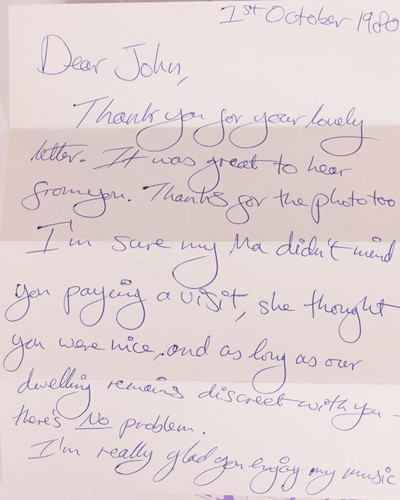 1st October 1980
Dear John,
Thank you for your lovely
letter. It was great to hear
from you. Thanks for the photo too
I'm sure my Ma didn't mind
you paying a visit, she thought
you were nice, and as long as our
dwelling remains discreet with you -
there's No problem.
I'm really glad you enjoy my music